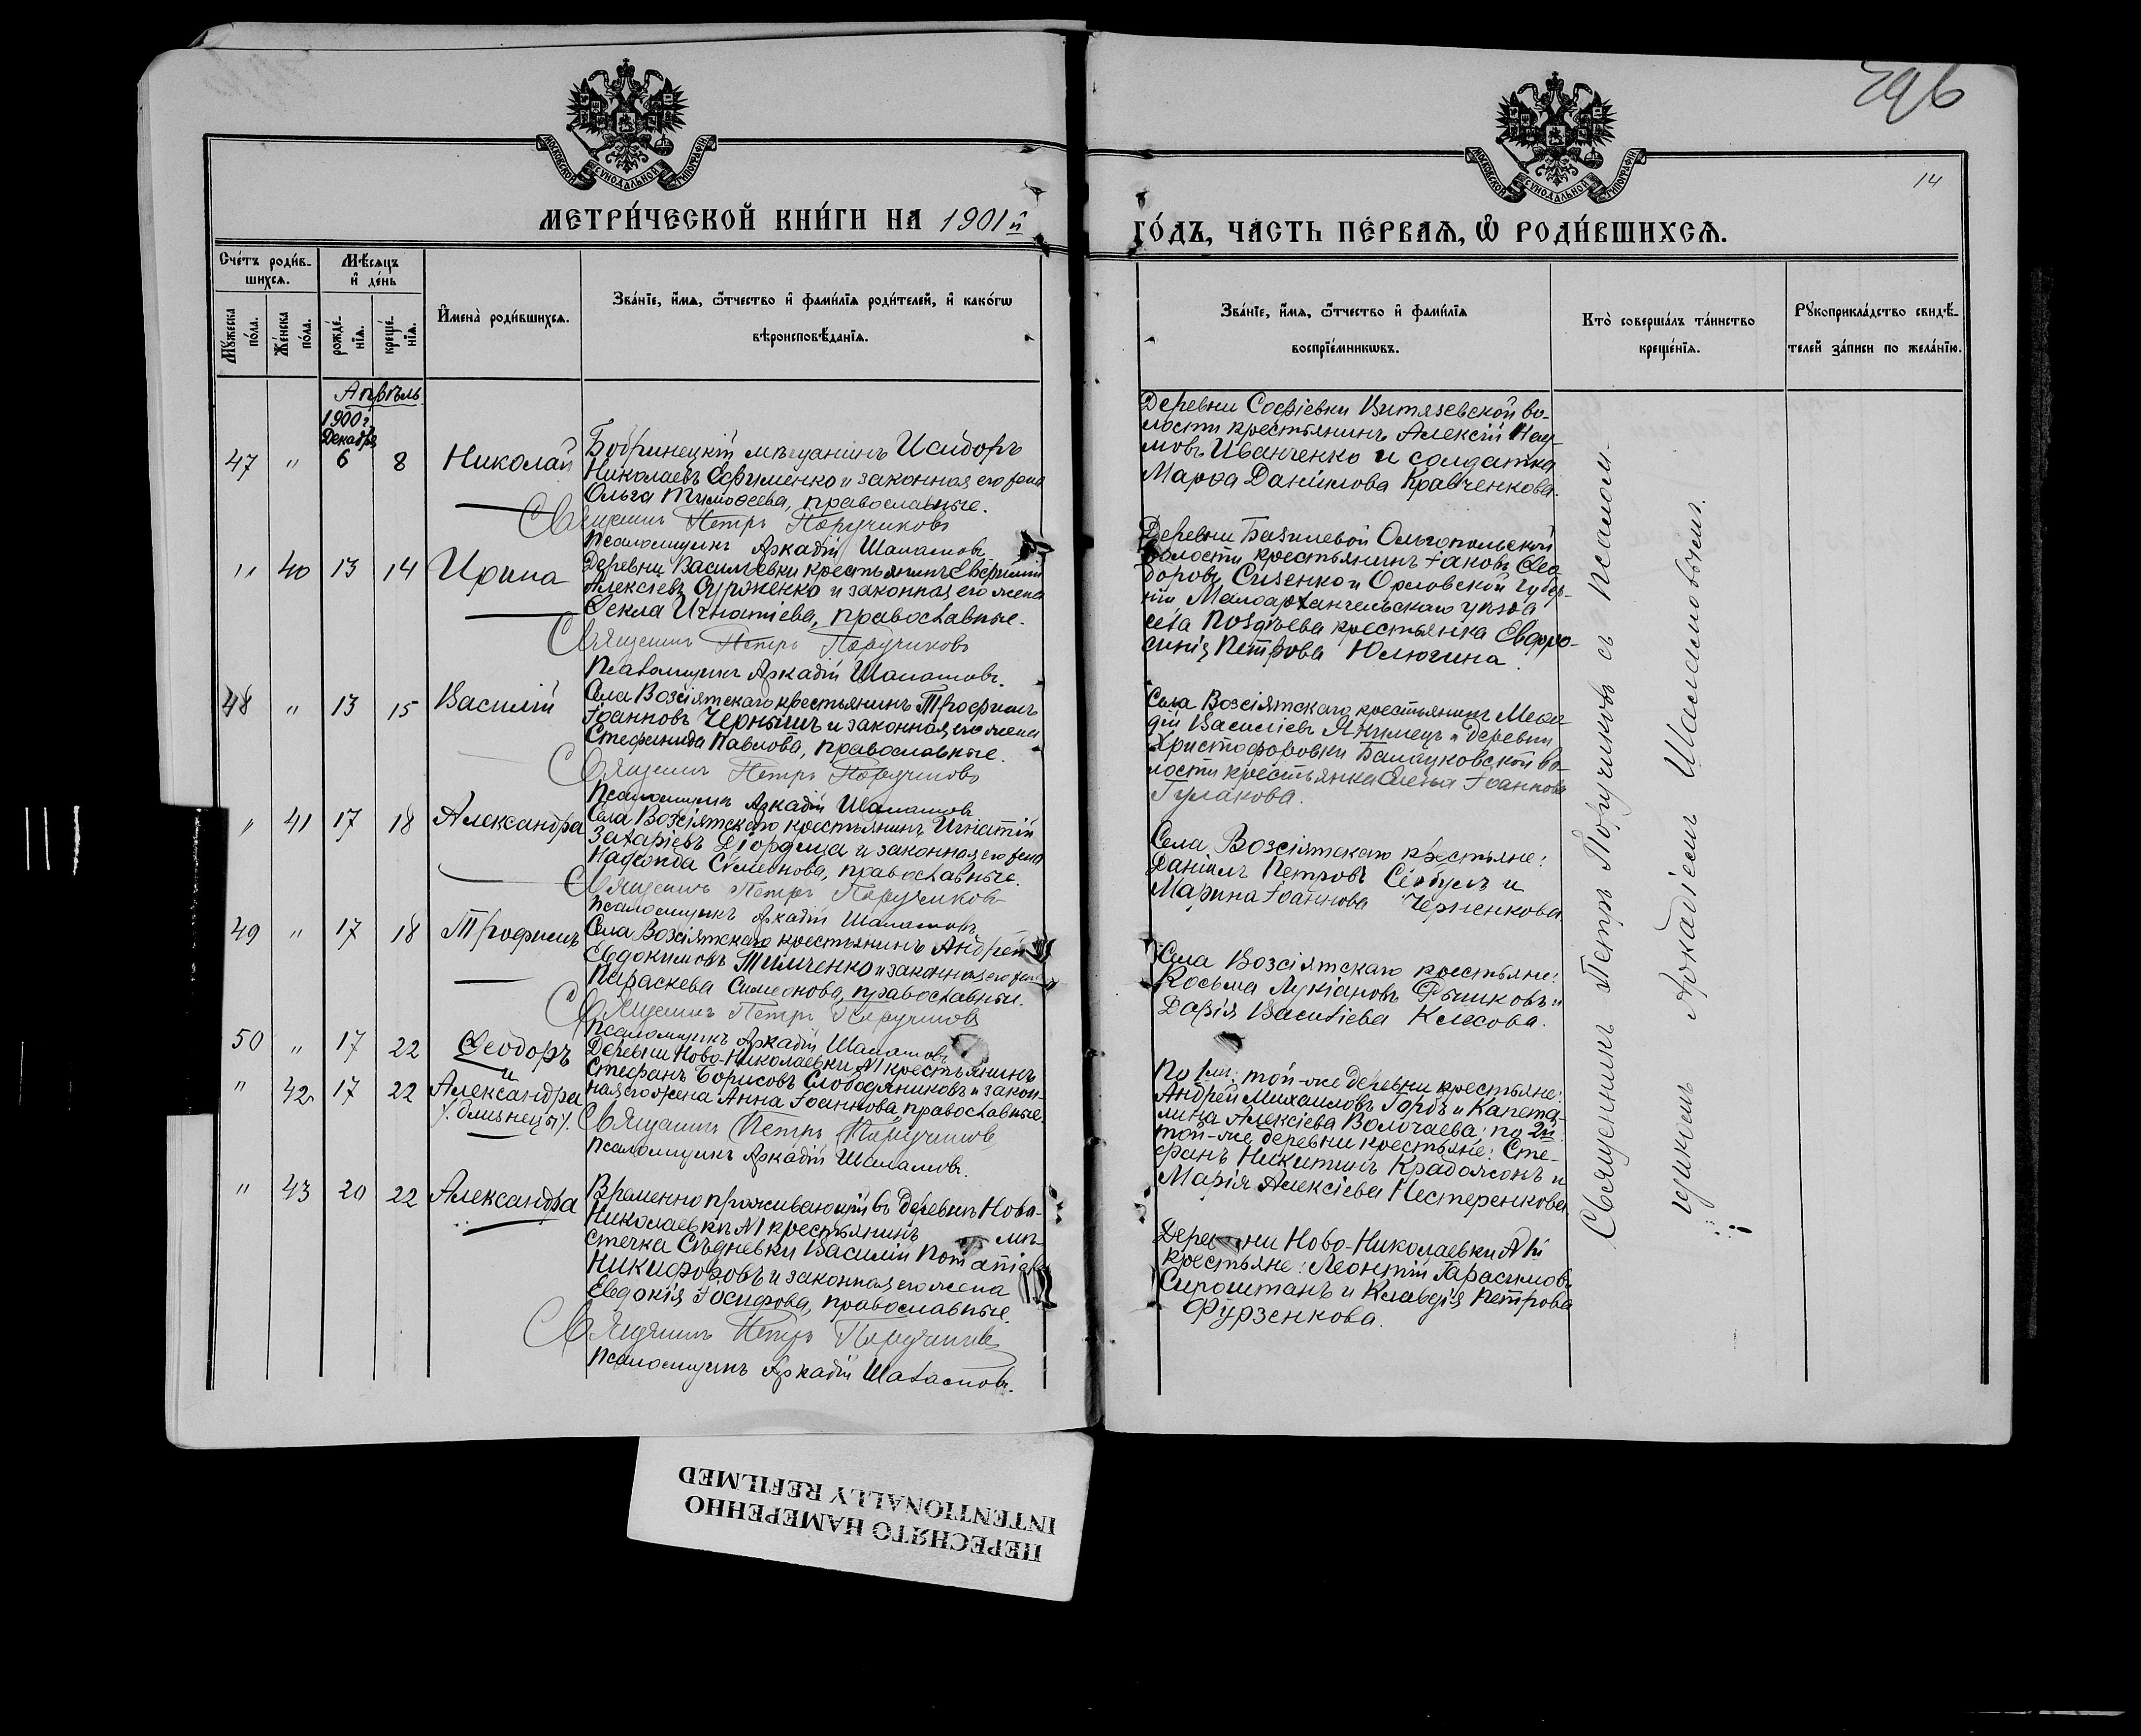 396
14
МОСКОВСКОЙ СУНОДАЛЬНОЙ ТИПОГРАФІИ
МОСКОВСКОЙ СУНОДАЛЬНОЙ ТИПОГРАФІИ
МЕТРИ́ЧЕСКОЙ КНИ́ГИ НА 1901й
ГО́ДЪ, ЧА́СТЬ ПЕ́РВАѦ, Ѽ РОДИ́ВШИХСѦ.
Сче́тъ роди́в-
шихсѧ.
Мѣ́сѧцъ
и҆ де́нь
Мꙋ́жеска
по́ла.
Же́нска
по́ла.
рожде́-
нїѧ.
креще́-
нїѧ.
И҆мена̀ роди́вшихсѧ.
Зва́нїе, и҆́мѧ, ѻ҆́тчество и҆ фами́лїѧ роди́телей, и҆ како́гѡ
вѣроисповѣ́данїѧ.
Зва́нїе, и҆́мѧ, ѻ҆́тчество и҆ фами́лїѧ
воспрїе́мникѡвъ.
Кто̀ соверша́лъ та́инство
креще́нїѧ.
Рꙋкоприкла́дство свидѣ́-
телей за́писи по жела́нїю.
Апрѣль
1900 г.
Декабря
47 " 6 8 Николай
Бобринецкій мѣщанинъ Исидоръ
Николаевъ Ефименко и законная его жена
Ольга Тимоѳеева, православные.
Священникъ Петръ Поручиковъ
Псаломщикъ Аркадій Шаламовъ
Деревни Софіевки Витязевской во-
лости крестьянинъ Алексій Нау-
мовъ Иванченко и солдатка
Марѳа Данiилова Кравченкова.
" 40 13 14 Ирина
Деревни Васильевки крестьянинъ
Алексіевъ Сурженко и законная его жена
Ѳекла Игнатіева, православные.
Священникъ Петръ Поручиковъ
Псаломщикъ Аркадій Шаламовъ.
Деревни Базилевой Ольгопольской
волости крестьянинъ Іаковъ Ѳео-
доровъ Сизенко и Орловской губер-
ніи Малоархангельскаго уѣзда
села Поздѣева крестьянка Евфро-
синія Петрова Юлюгина.
48 " 13 15 Василій
Села Возсіятскаго крестьянинъ Трофимъ
Іоанновъ Чернышъ и законная его жена
Стефанида Павлова, православные.
Священникъ Петръ Поручиковъ
Псаломщикъ Аркадій Шаламовъ
Села Возсіятскаго крестьянинъ
Василіевъ Якимецъ и деревни
Христофоровки Баландковской во-
лости крестьянка Іоаннова
Гулакова.
" 41 17 18 Александра
Села Возсіятскаго крестьянинъ Игнатій
Захаріевъ Діордица и законная его жена
Надежда Симеонова, православные.
Священникъ Петръ Поручиковъ
Псаломщикъ Аркадій Шаламовъ
Села Возсіятскаго крестьяне:
Даніилъ Петровъ и
Марина Іоаннова Черненкова
49 " 17 18 Трофимъ
Села Возсіятскаго крестьянинъ Андрей
Евдокимовъ Тимченко и законная его жена
Параскева Симеонова, православные.
Священникъ Петръ Поручиковъ
Псаломщикъ Аркадій Шаламовъ
Села Возсіятскаго крестьяне:
Косьма Лукіановъ Рычковъ и
Дарія Василіева Клесова.
50 " 17 22 Ѳеодоръ
и
" 42 17 22 Александра
/близнецы/.
Деревни Ново-Николаевки №1 крестьянинъ
Стефанъ Борисовъ Слободяниковъ и закон-
ная его жена Анна Іоаннова православные.
Священникъ Петръ Поручиковъ
Псаломщикъ Аркадій Шаламовъ.
По 1мъ: той-же деревни крестьяне:
Андрей Михаиловъ Гордъ и Капето-
лина Алексіева Волочаева; по 2й
той-же деревни крестьяне: Сте-
фанъ Никитинъ и
Марія Алексіева Нестеренкова
" 43 20 22 Александра
Временно проживающій въ деревнѣ Ново-
Николаевкѣ №1 крестьянинъ мѣ-
стечка Сѣдневки Василій
Никифоровъ и законная его жена
Евдокія Іосифова, православные.
Священникъ Петръ Поручиковъ
Псаломщикъ Аркадій Шаламовъ.
Деревни Ново-Николаевки №1й
крестьяне: Леонтій Гарасимовъ
Сироштанъ и Клавдія Петрова
Фурзенкова.
Священникъ Петръ Поручиковъ съ псалом-
щикомъ Аркадіемъ Шаламовымъ.
ПЕРЕСНЯТО НАМЕРЕННО
INTENTIONALLY REFILMED